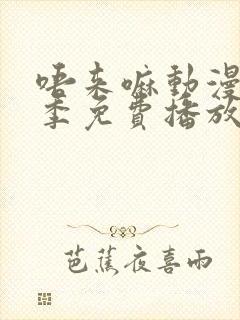 唔来嘛動漫
季免費播放
芭蕉夜喜雨